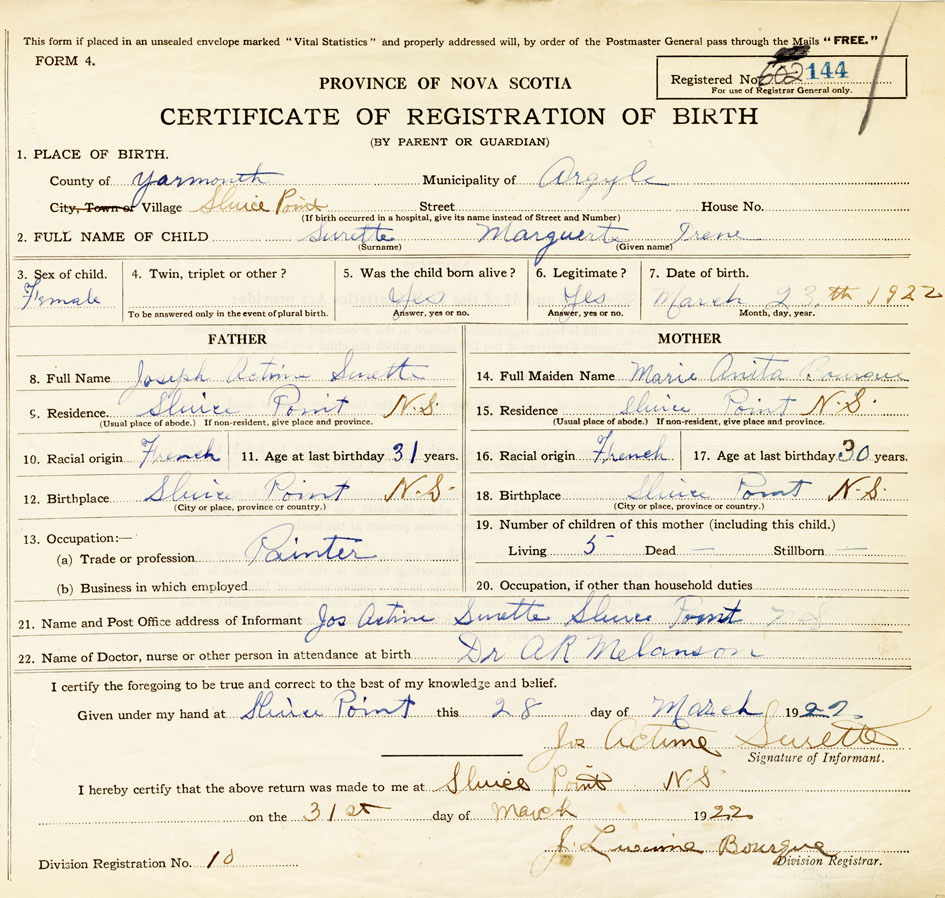 This form if placed in an unsealed envelope marked "Vital Statistics" and properly addressed will, by order of the Postmaster General pass through the Mails "FREE."
FORM 4.
Registered No. 602 144
For use of Registrar General only.
PROVINCE OF NOVA SCOTIA
CERTIFICATE OF REGISTRATION OF BIRTH
(BY PARENT OR GUARDIAN)
1. PLACE OF BIRTH.
County of Yarmouth Municipality of Argyle
City, Town or Village Sluice Point Street House No.
(If birth occurred in a hospital, give its name instead of Street and Number)
2. FULL NAME OF CHILD Surette Marguerte Irene
(Surname) (Given name)
3. Sex of child. 4. Twin, triplet or other? 5. Was the child born alive? 6. Legitimate? 7. Date of birth.
Female Yes Yes March 23th 1922
To be answered only in the event of plural birth. Answer, yes or no. Answer, yes or no. Month, day, year.
FATHER
8. Full Name Joseph Actime Surette
9. Residence. Sluice Point N.S.
(Usual place of abode.) If non-resident, give place and province.
10. Racial origin French 11. Age at last birthday 31 years.
12. Birthplace Sluice Point N.S.
(City or place, province or country.)
13. Occupation:—
(a) Trade or profession Painter
(b) Business in which employed
MOTHER
14. Full Maiden Name Marie Anita Bourque
15. Residence Sluice Point N.S.
(Usual place of abode.) If non-resident, give place and province.
16. Racial origin French 17. Age at last birthday 30 years.
18. Birthplace Sluice Point N.S.
(City or place, province or country.)
19. Number of children of this mother (including this child.)
Living 5 Dead — Stillborn —
20. Occupation, if other than household duties
21. Name and Post Office address of Informant Jos Actime Surette Sluice Point N S
22. Name of Doctor, nurse or other person in attendance at birth Dr A R Melanson
I certify the foregoing to be true and correct to the best of my knowledge and belief.
Given under my hand at Sluice Point this 28 day of March 1922
Jos Actime Surette
Signature of Informant.
I hereby certify that the above return was made to me at Sluice Point N S
on the 31st day of March 1922
J. Bourque
Division Registration No. 10 Division Registrar.